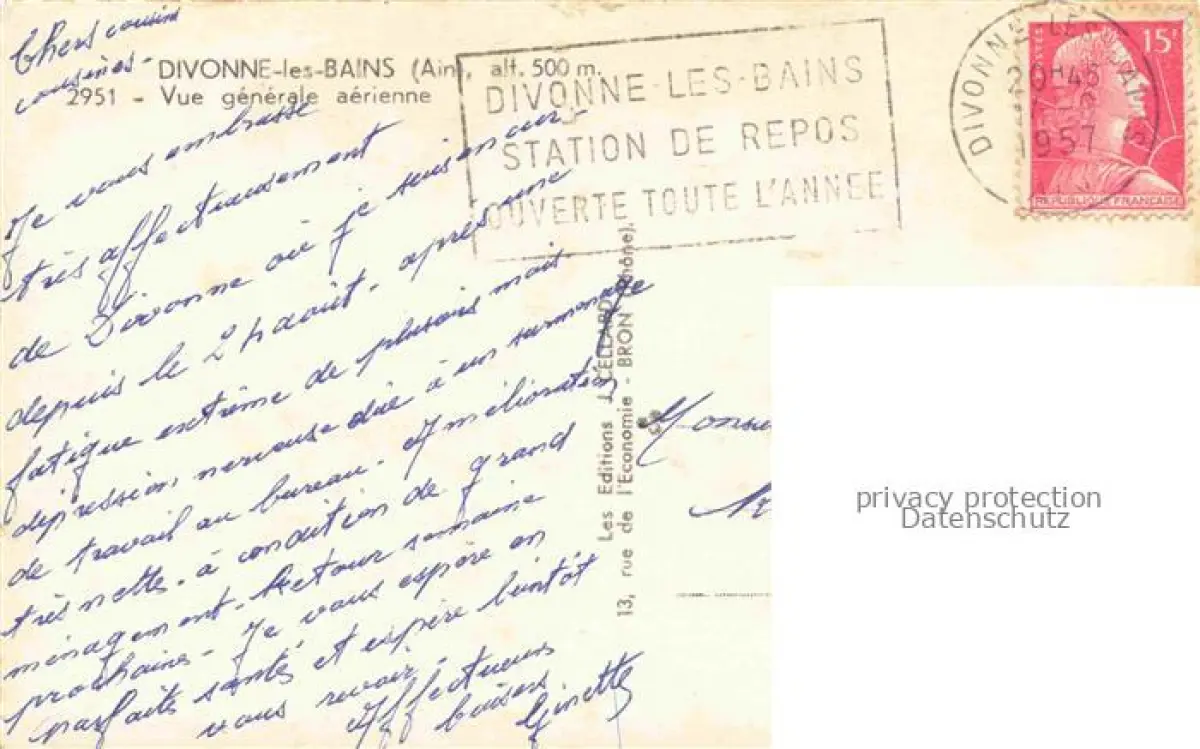 Chers cousins
cousines -
DIVONNE-les-BAINS (Ain), alt. 500 m.
2951 - Vue générale aérienne
Je vous embrasse
très affectueusement
de Divonne où je suis en cur-
depuis le 24 août. après une
fatigue extrême de plusieurs mois
dépression nerveuse due à un surmenage
de travail au bureau. Amélioration
très nette. à condition de grand
ménagement. Retour semaine
prochaine - Je vous espère en
parfaite santé et espère bientôt
vous revoir.
Affectueux
baisers
Ginette
DIVONNE-LES-BAINS
STATION DE REPOS
OUVERTE TOUTE L'ANNÉE
DIVONNE LES BAINS
20H45
1957
AIN
15F
POSTES
REPUBLIQUE FRANÇAISE
Les Editions J. CELLARD
13, rue de l'Economie - BRON (Rhône).
privacy protection
Datenschutz